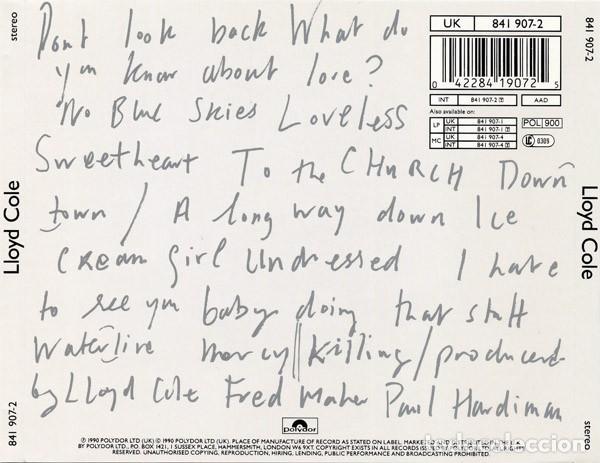 stereo
Lloyd Cole
841 907-2
Dont look back What do
you know about love?
No Blue Skies Loveless
Sweetheart To the CHURCH Down
town / A long way down Ice
Cream girl Undressed I hate
to see you baby doing that stuff
Waterline mercy || Killing / produced
by Lloyd Cole Fred Maher Paul Hardiman
UK 841 907-2
0 42284 19072 5
INT 841 907-2 AAD
Also available on:
LP UK 841 907-1
INT 841 907-1
MC UK 841 907-4
INT 841 907-4
POL 900
LC 0309
841 907-2
Lloyd Cole
stereo
Polydor
℗ 1990 POLYDOR LTD (UK) © 1990 POLYDOR LTD (UK). PLACE OF MANUFACTURE OF RECORD AS STATED ON LABEL.
P.O. BOX 1421, 1 SUSSEX PLACE, HAMMERSMITH, LONDON W6 9XT. COPYRIGHT EXISTS IN ALL RECORDS
UNAUTHORISED COPYING, REPRODUCTION, HIRING, LENDING, PUBLIC PERFORMANCE AND BROADCASTING PROHIBITED.
todocoleccion